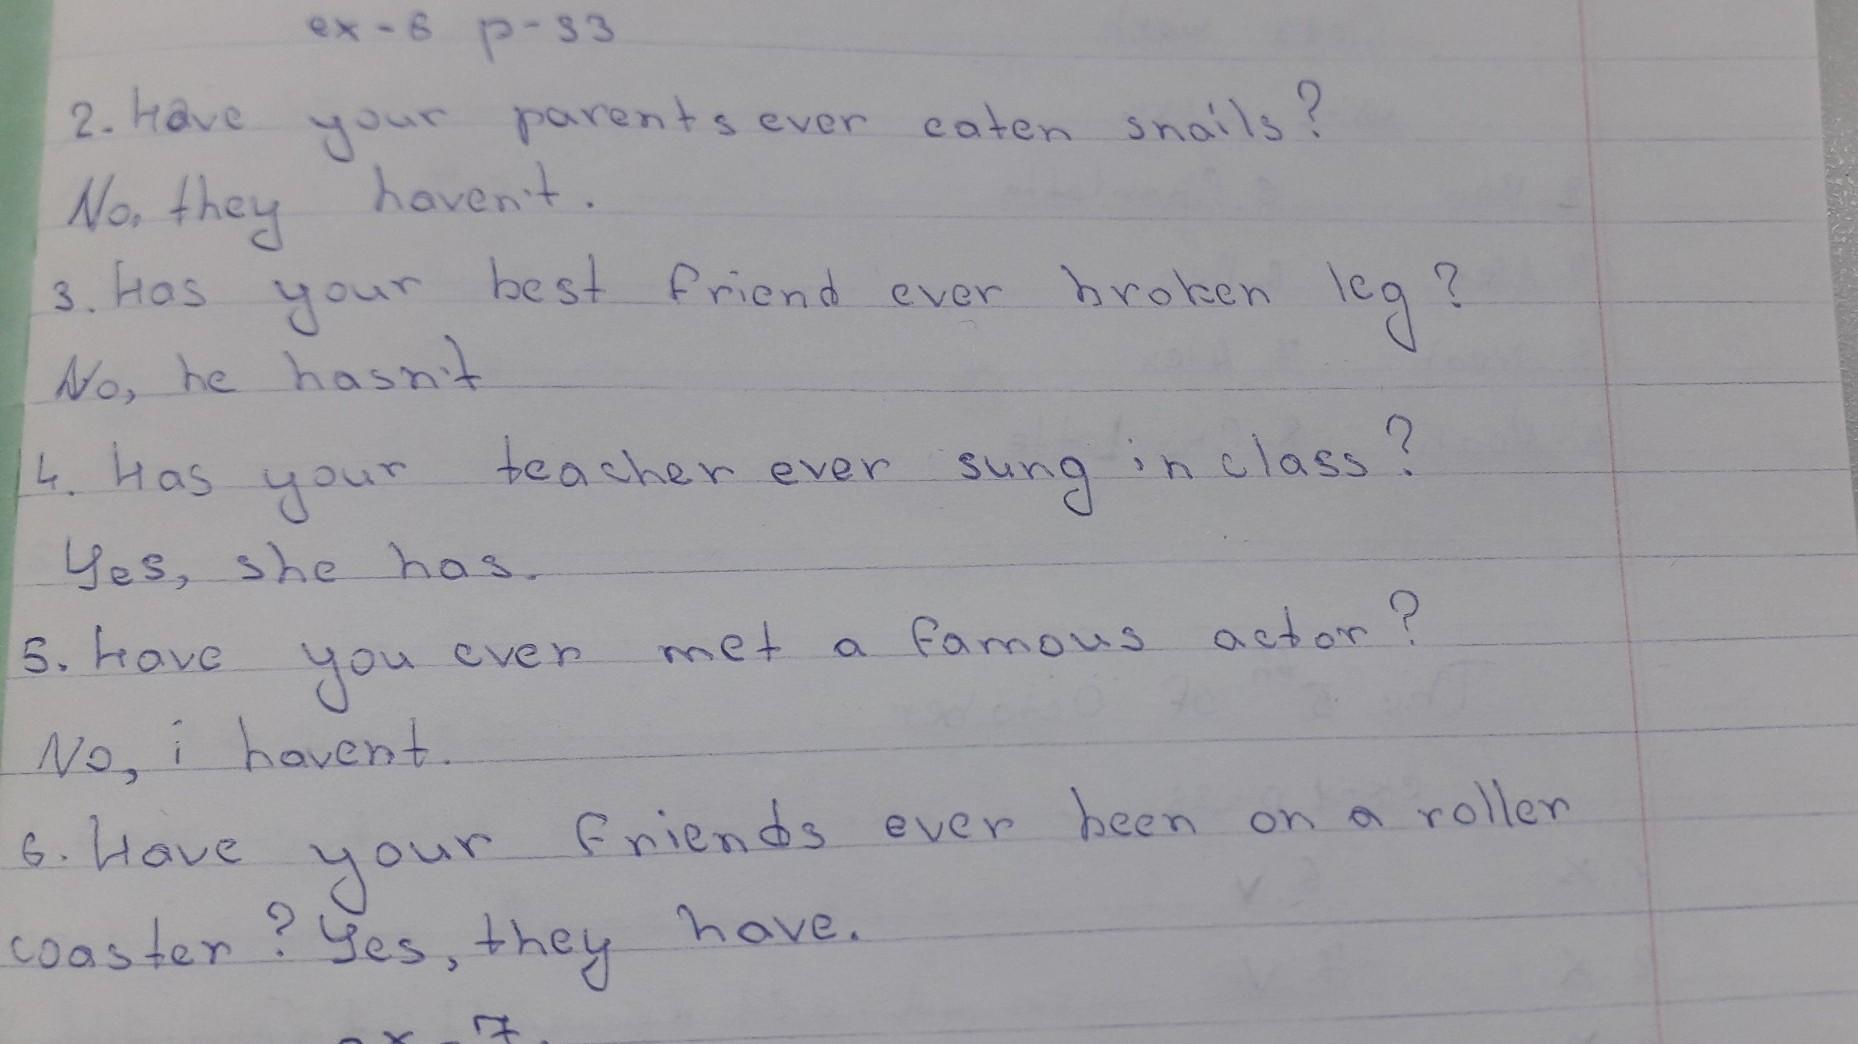 ex-6 p-33
2. Have your parents ever eaten snails?
No, they haven't.
3. Has your best friend ever broken leg?
No, he hasn't
4. Has your teacher ever sung in class?
Yes, she has.
5. Have you ever met a famous actor?
No, i havent.
6. Have your friends ever been on a roller
coaster? Yes, they have.
ex-7.